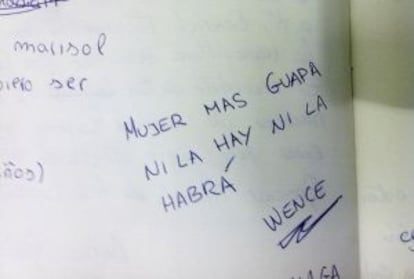 marisol
ser
MUJER MAS GUAPA
NI LA HAY NI LA
HABRÁ
WENCE